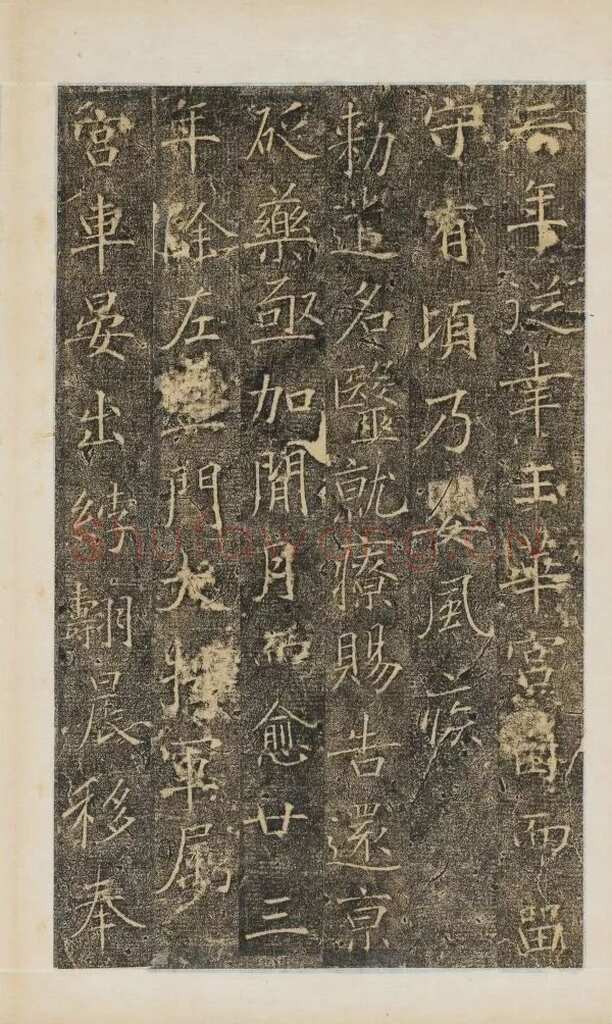 二年從幸玉華宮因而留
守有頃乃嬰風疾
勑遣名毉就療賜告還京
砭藥亟加閒月而愈廿三
年除左監門大將軍屬
宮車晏出綍晨移奉
shufawang.cn